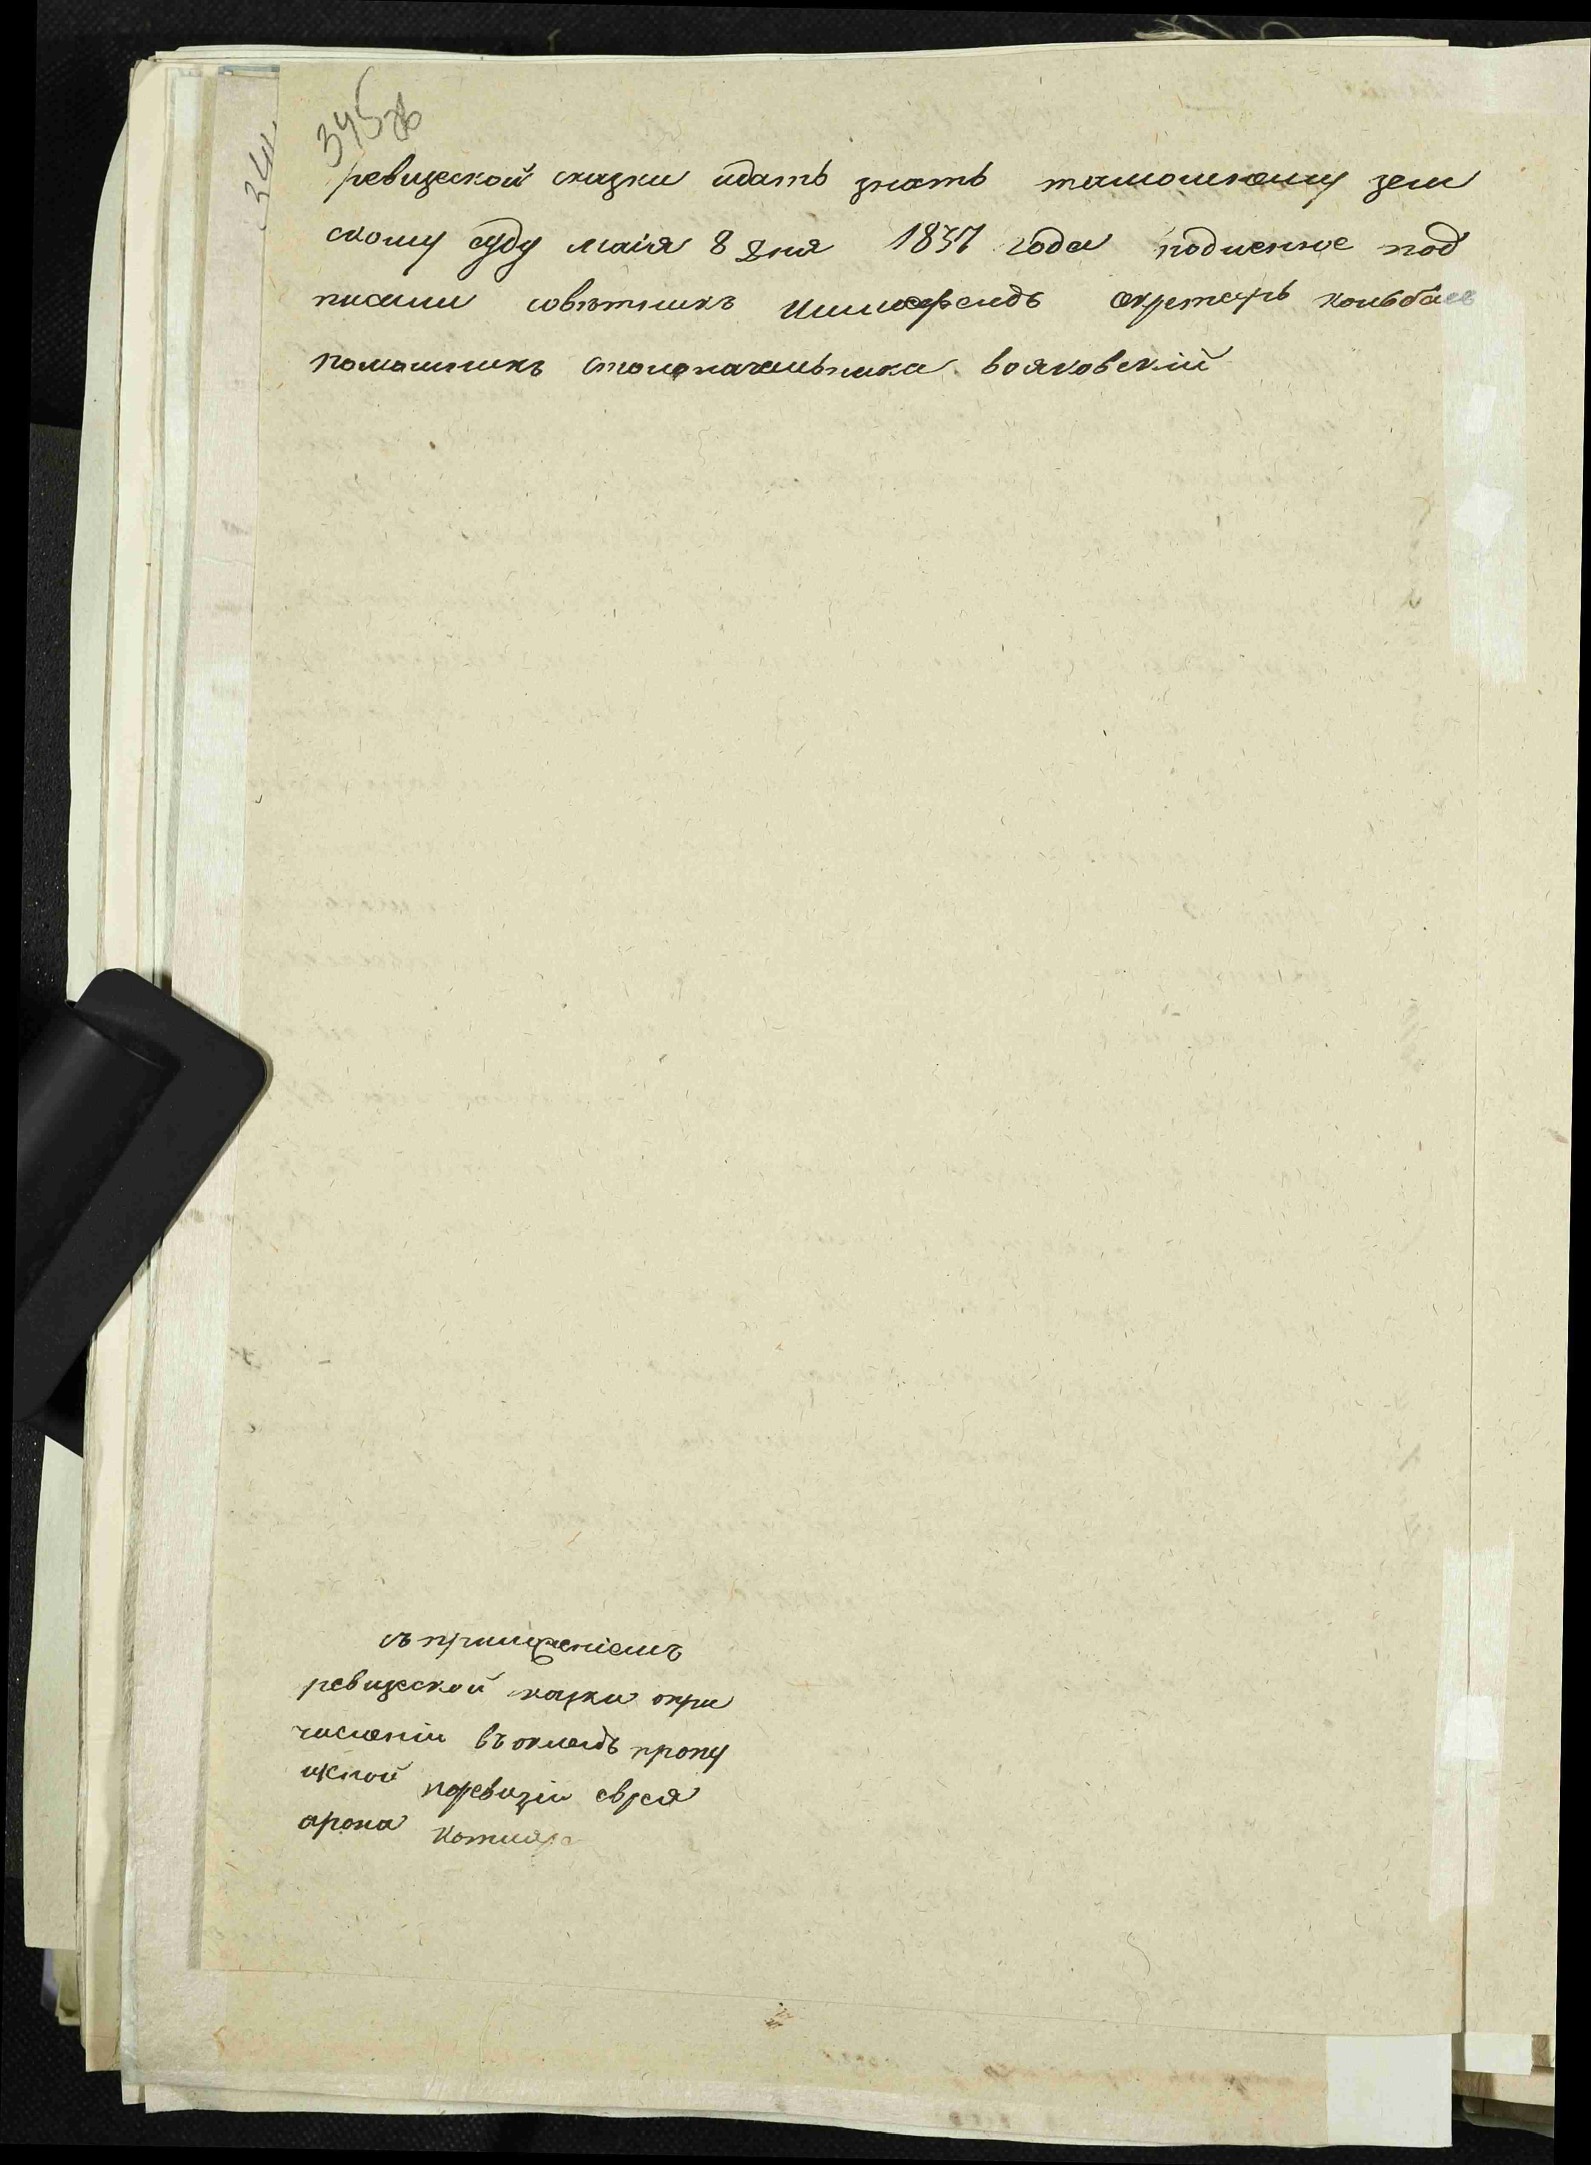 345 об
344
ревизской сказки идать знать тамошнему зем
скому суду маія 8 дня 1837 года подленное под
писали совѣтникъ секретарь
помошникъ столоначальника вояковскій
съ приложеніемъ
ревизской казки опри
численіи въ окладъ пропу
щеной поревизіи еврея
арона Котляра